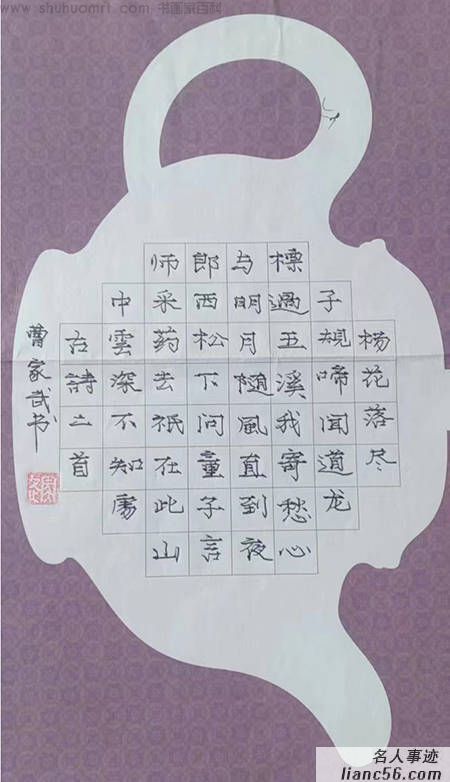 www.shuhuomri.com 书画家百科
杨花落尽
子規啼闻道龙
標過五溪我寄愁心
与明月随風直到夜
郎西松下问童子言
师采药去祇在此山
中雲深不知處
古詩二首
曹家武书
名人事迹
lianc56.com